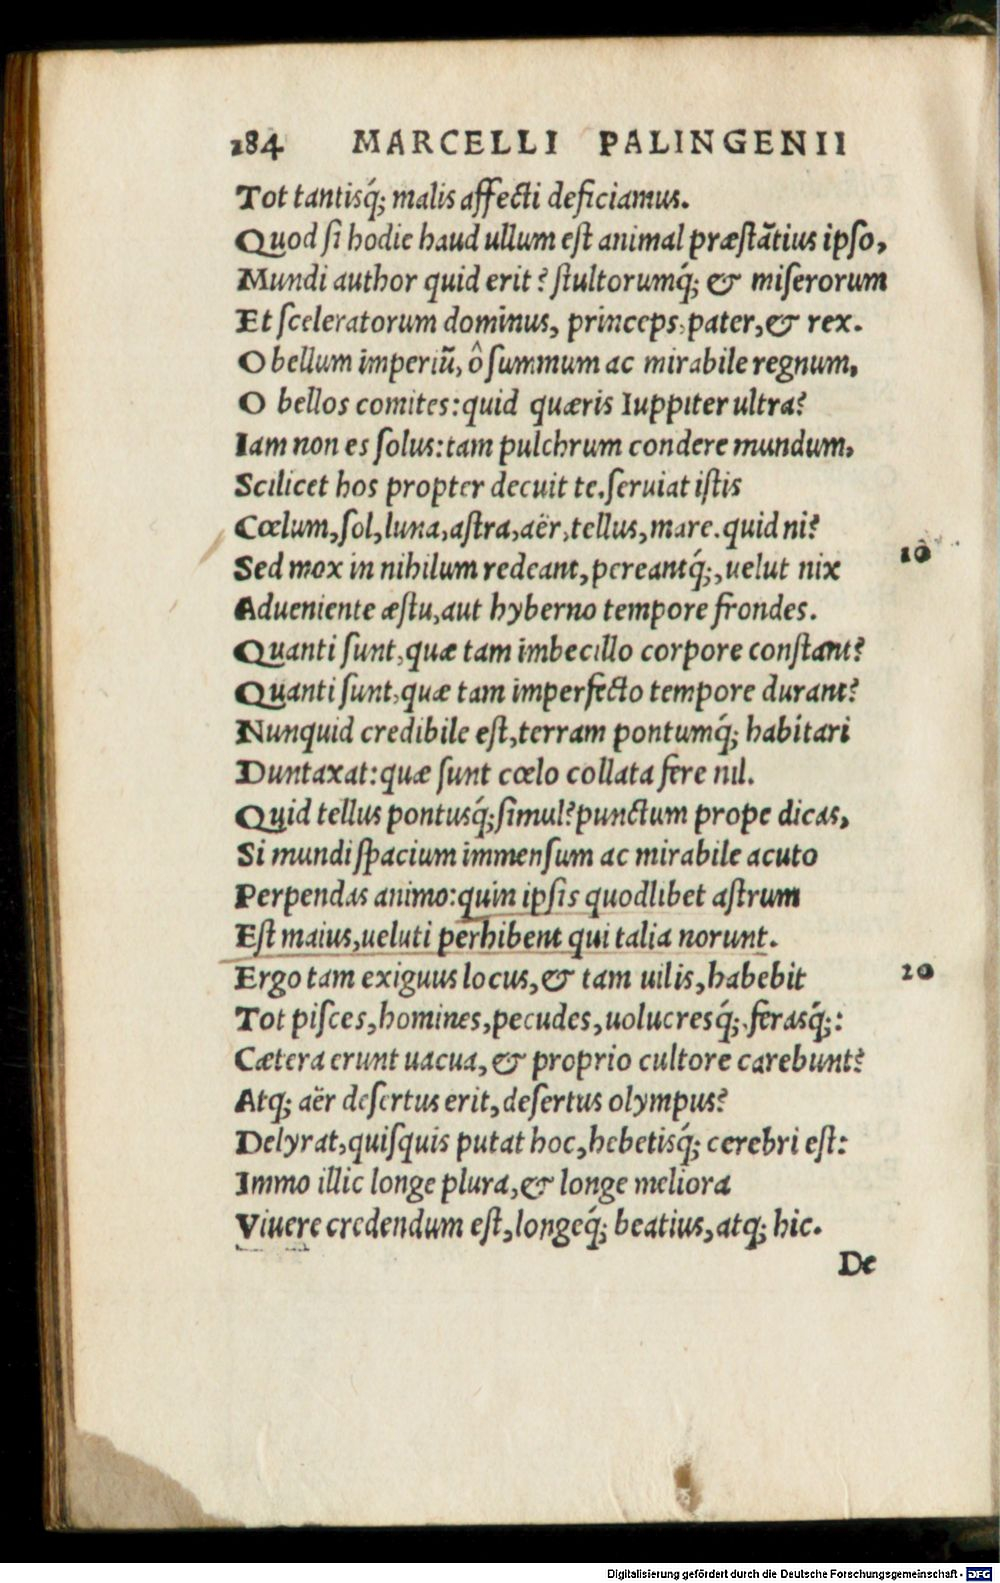 284 MARCELLI PALINGENII
Tot tantisq́; malis affecti deficiamus.
Quod ſi hodie haud ullum eſt animal præſtãtius ipſo,
Mundi author quid erit? ſtultorumq́; & miſerorum
Et ſceleratorum dominus, princeps, pater, & rex.
O bellum imperiũ, ô ſummum ac mirabile regnum,
O bellos comites: quid quæris Iuppiter ultra?
Iam non es ſolus: tam pulchrum condere mundum,
Scilicet hos propter decuit te. ſeruiat iſtis
Cœlum, ſol, luna, aſtra, aër, tellus, mare. quid ni?
Sed mox in nihilum redeant, pereantq́;, uelut nix 10
Adueniente æſtu, aut hyberno tempore frondes.
Quanti ſunt, quæ tam imbecillo corpore conſtant?
Quanti ſunt, quæ tam imperfecto tempore durant?
Nunquid credibile eſt, terram pontumq́; habitari
Duntaxat: quæ ſunt cœlo collata fere nil.
Quid tellus pontusq́; ſimul? punctum prope dicas,
Si mundi ſpacium immenſum ac mirabile acuto
Perpendas animo: quin ipſis quodlibet aſtrum
Eſt maius, ueluti perhibent qui talia norunt.
Ergo tam exiguus locus, & tam uilis, habebit 20
Tot piſces, homines, pecudes, uolucresq́;, ferasq́;:
Cætera erunt uacua, & proprio cultore carebunt?
Atq; aër deſertus erit, deſertus olympus?
Delyrat, quiſquis putat hoc, hebetisq́; cerebri eſt:
Immo illic longe plura, & longe meliora
Viuere credendum eſt, longeq́; beatius, atq; hic.
De
Digitalisierung gefördert durch die Deutsche Forschungsgemeinschaft - DFG